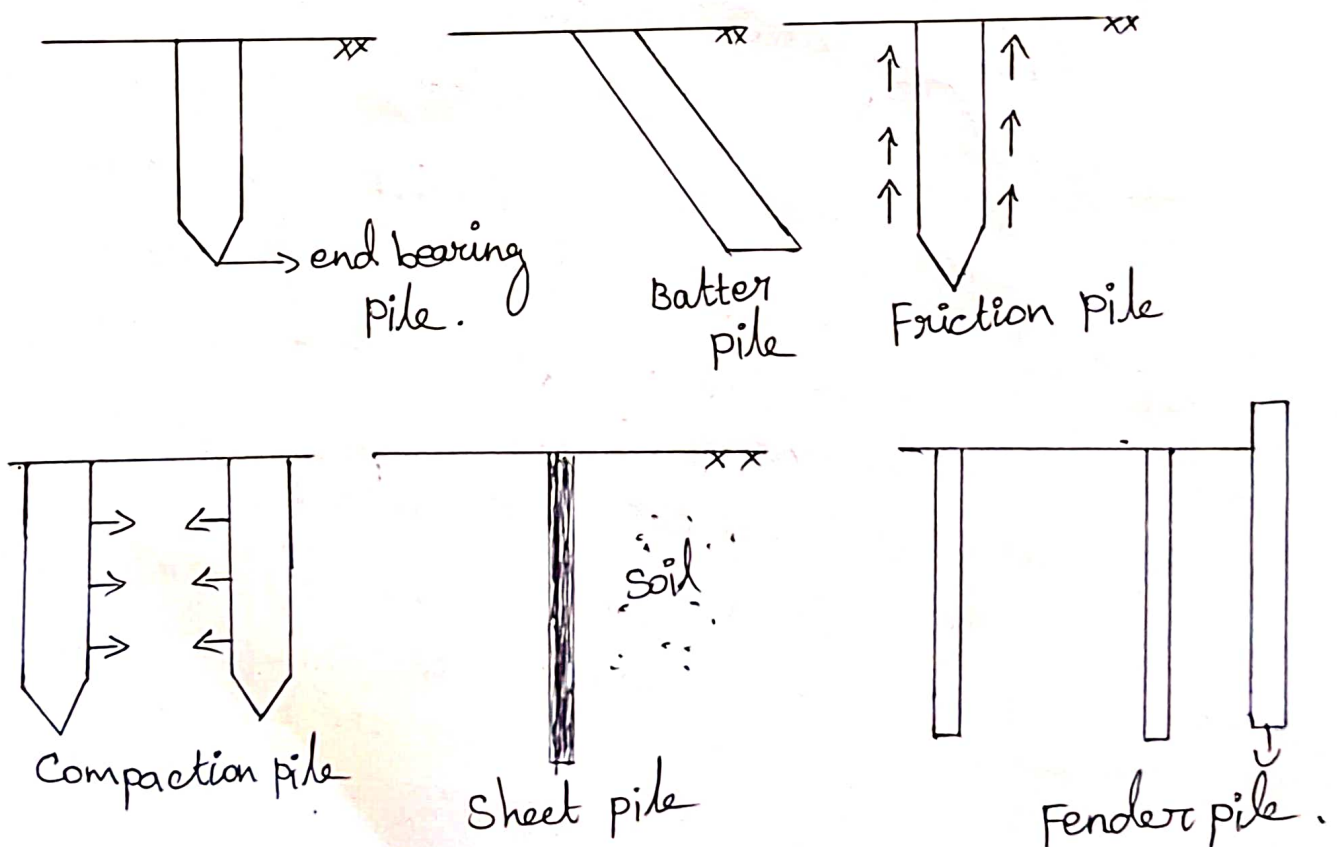 end bearing
pile.
Batter
pile
Friction pile
Compaction pile
Soil
Sheet pile
Fender pile.